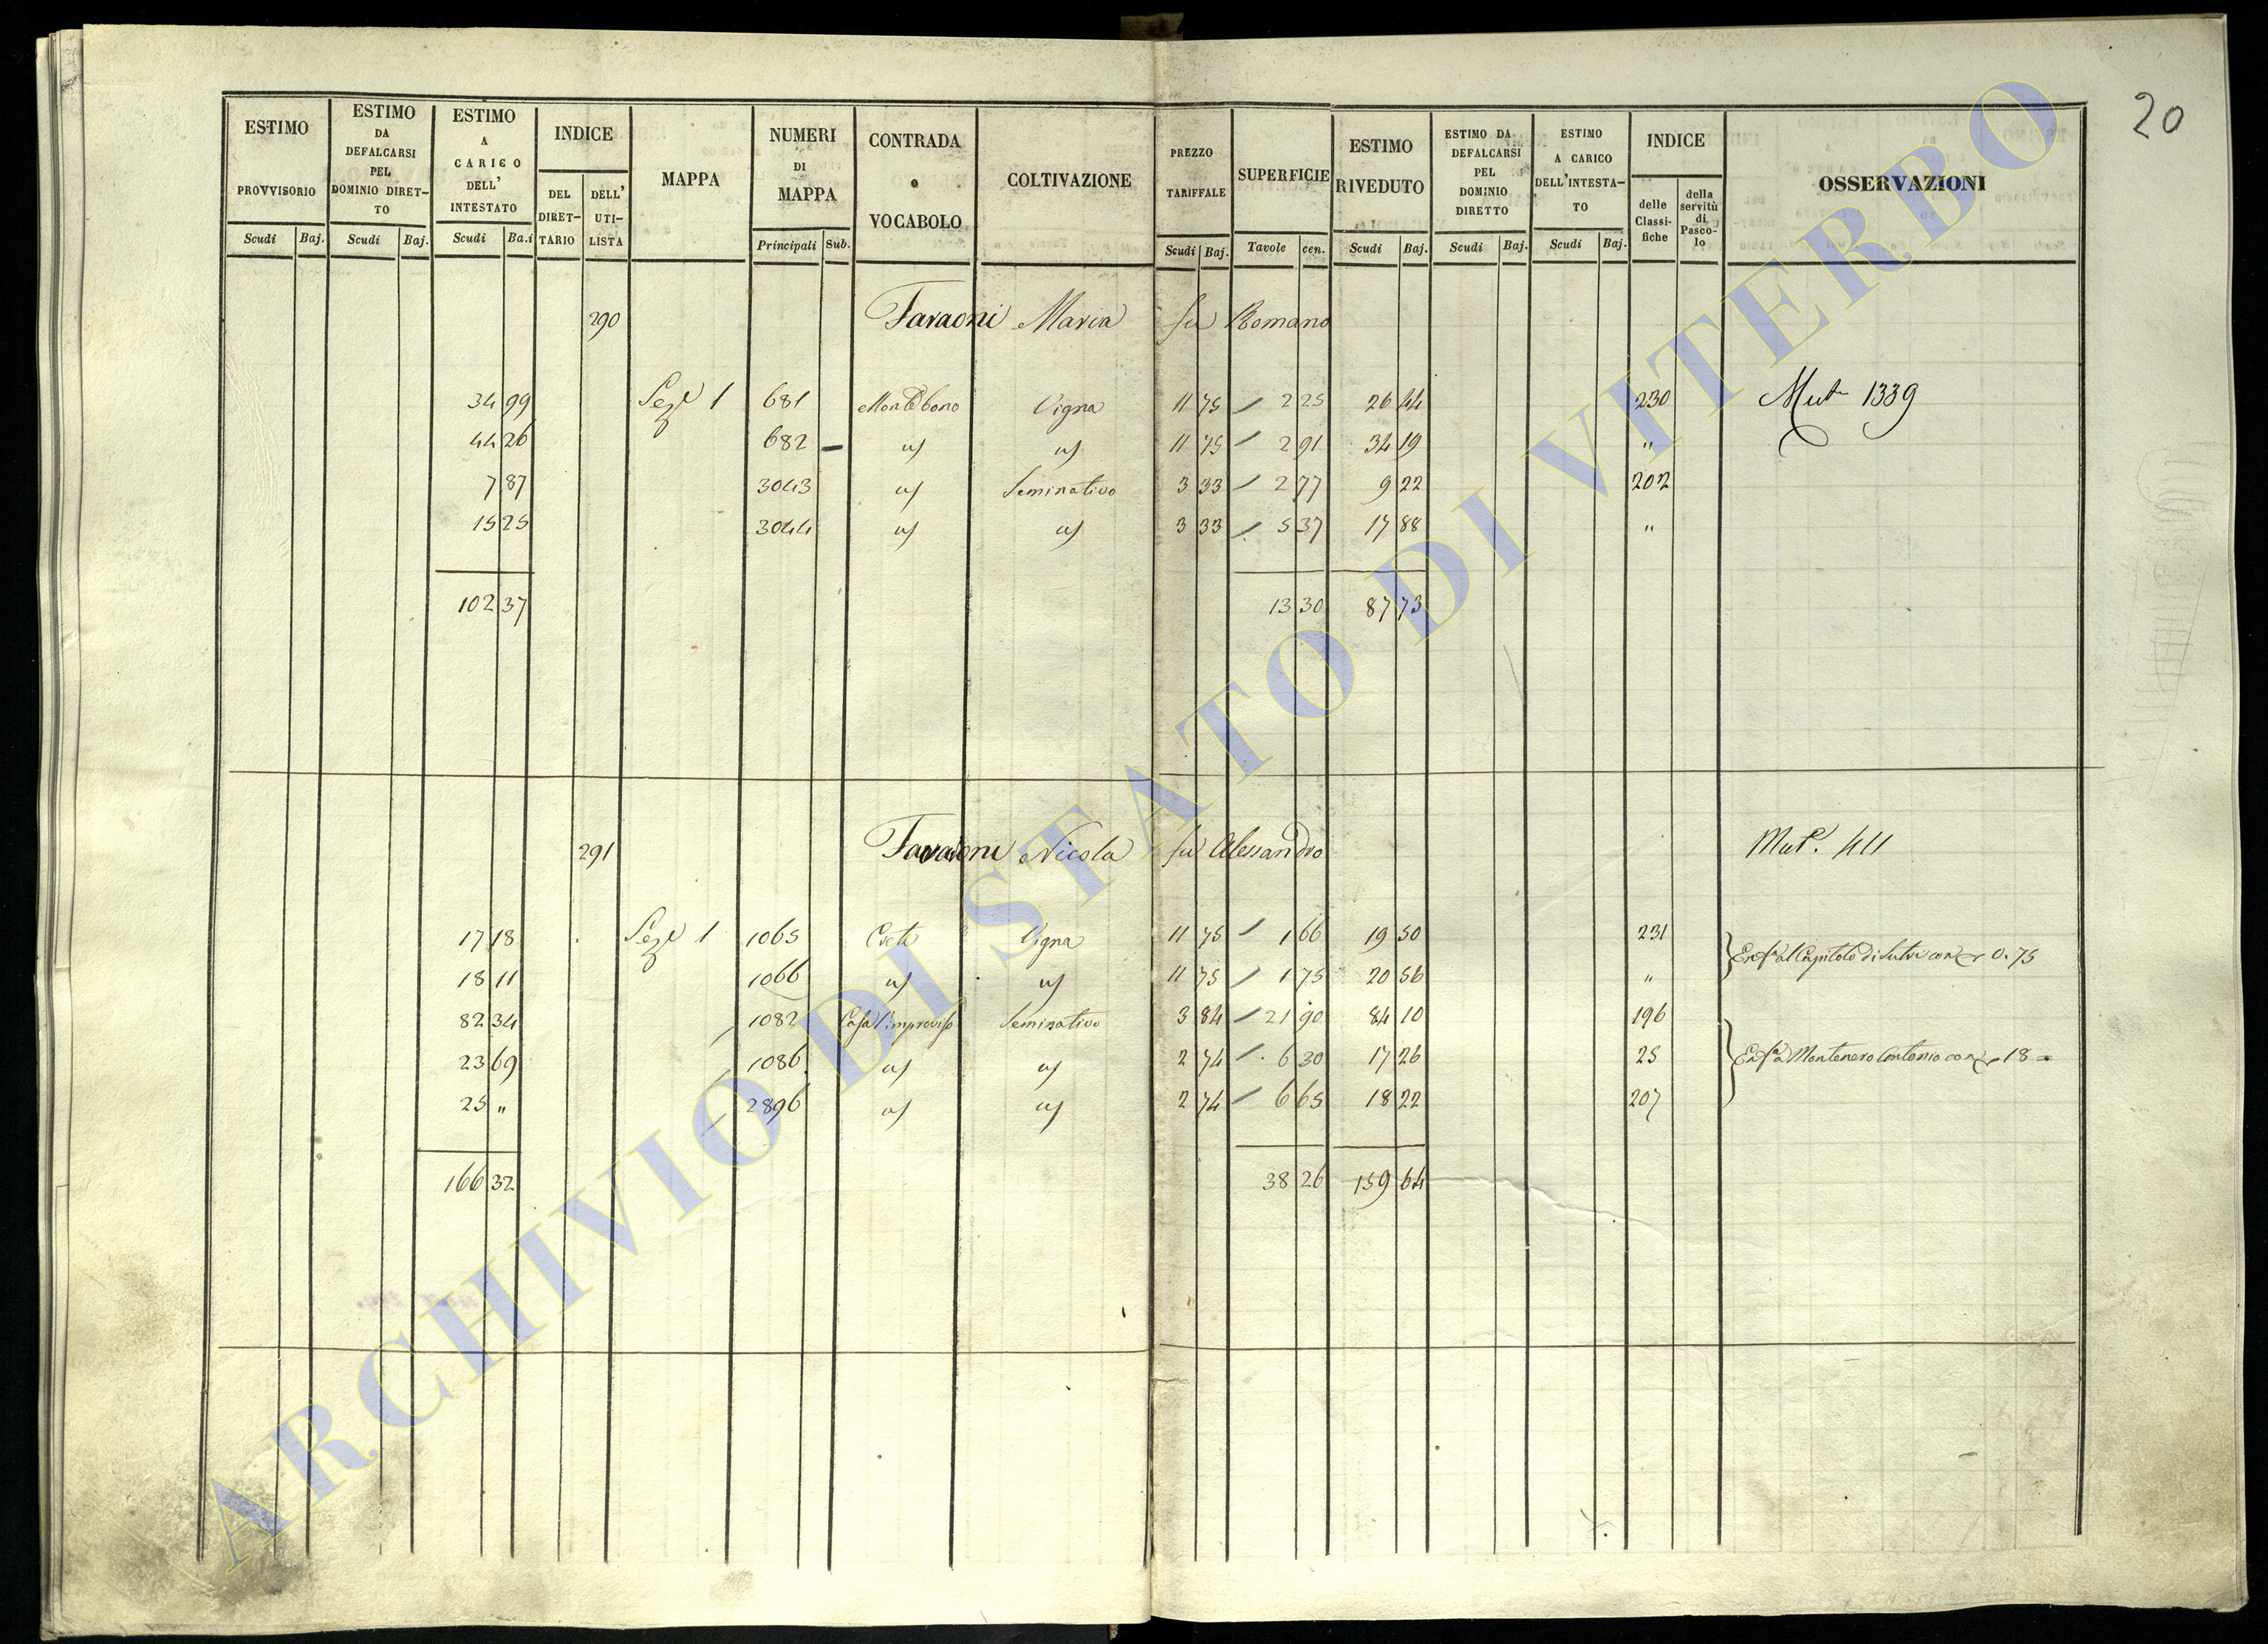 20
ESTIMO PROVVISORIO
ESTIMO DA DEFALCARSI PEL DOMINIO DIRET-TO
ESTIMO A CARICO DELL' INTESTATO
INDICE
DEL DIRET-TARIO
DELL' UTI-LISTA
MAPPA
NUMERI DI MAPPA
CONTRADA o VOCABOLO
COLTIVAZIONE
PREZZO TARIFFALE
SUPERFICIE
ESTIMO RIVEDUTO
ESTIMO DA DEFALCARSI PEL DOMINIO DIRETTO
ESTIMO A CARICO DELL'INTESTA-TO
INDICE
delle Classi-fiche
della servitù di Pasco-lo
OSSERVAZIONI
Scudi Baj. Scudi Baj. Scudi Ba.i Principali Sub. Scudi Baj. Tavole cen. Scudi Baj. Scudi Baj. Scudi Baj.
290 Faraoni Maria fu Romano
34 99 Sez.e 1 681 Montebono Vigna 11 75 2 25 26 44 230 Mut 1339
44 26 682 id 11 75 2 91 34 19 "
7 87 3043 id Seminativo 3 33 2 77 9 22 202
15 25 3044 id id 3 33 5 37 17 88 "
102 37 13 30 87 73
291 Faraoni Nicola fu Alessandro Mut. 411
17 18 Sez.e 1 1065 Creti Vigna 11 75 1 66 19 50 231
18 11 1066 id id 11 75 1 75 20 56 "
Enf.a al Capitolo di Sutri con 0.75
82 34 1082 Casa l'improviso Seminativo 3 84 21 90 84 10 196
23 69 1086 id id 2 74 6 30 17 26 25 Enf.a a Montenero Antonio con 18 =
25 " 2896 id id 2 74 6 65 18 22 207
166 32 38 26 159 64
ARCHIVIO DI STATO DI VITERBO